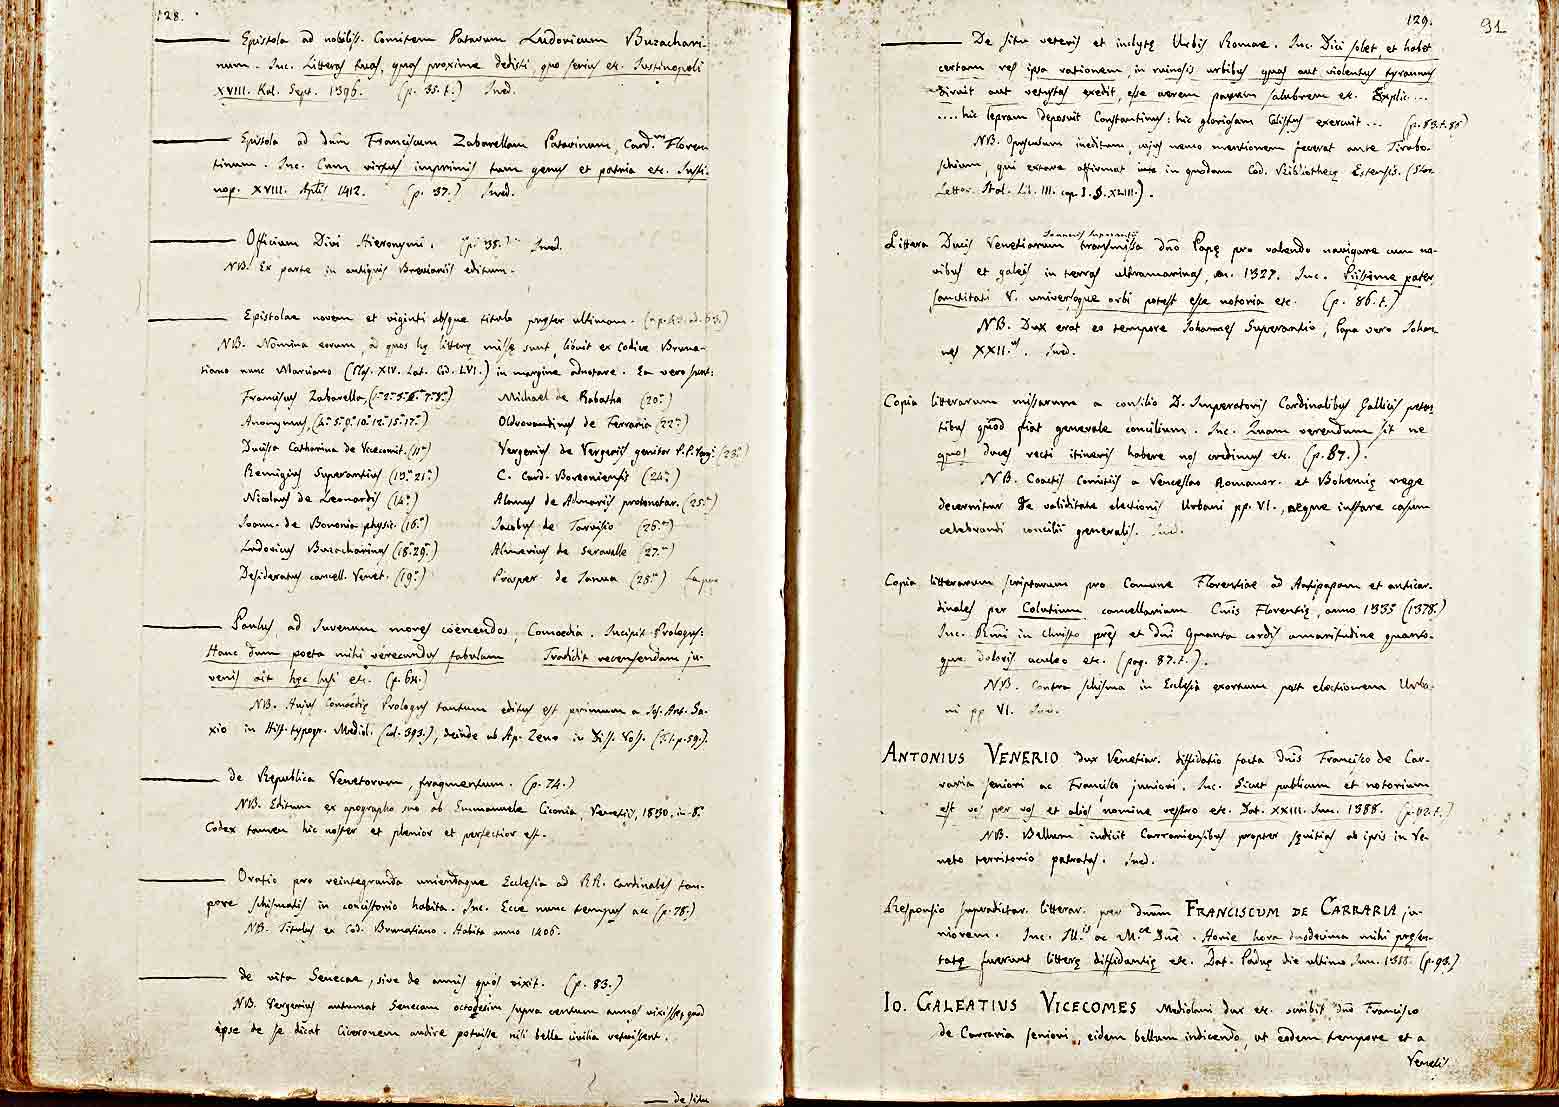 128.
Epistola ad nobiliss. Comitem Patavum Ludovicum Buzachari-
num. Inc. Litteras tuas, quas proxime dedisti, quo serius etc. Justinopoli
XVIII. Kal. Sept. 1396. (p. 35. t.) Ined.
Epistola ad dnm Franciscum Zabarellam Patavinum, Card. Floren-
tinum. Inc. Cum virtus imprimis tum genus et patria etc. Justi-
nop. XVIII. Aplis 1412. (p. 37.) Ined.
Officium Divi Hieronymi. (p. 38.) Ined.
NB. Ex parte in antiquis Breviariis editum.
Epistolae novem et viginti absque titulo praeter ultimam.
NB. Nomina eorum, ad quos hę litterę missę sunt, libuit ex codice Bruna-
tiano nunc Marciano (Clas. XIV. Lat. Cod. LVI.) in margine adnotare. Ea vero sunt:
Franciscus Zabarella,
Michael de Rabatha (20.)
Anonymus,
Oldrovandinus de Ferraria (22.)
Ducissa Catharina de Vicecomit. (11.)
Vergerius de Vergeriis genitor P. P. Vergr. (23.)
Remigius Superantius (13. 21.)
C. Card. Bononiensis (24.)
Nicolaus de Leonardis (14.)
Alanus de Adinariis protonotar. (25.)
Joann. de Bononia physic. (16.)
Jacobus de Tarvisio (26.)
Ludovicus Buzacharinus (18. 29.)
Almericus de Seravalle (27.)
Desideratus cancell. Venet. (19.)
Prosper de Janua (28.)
Paulus, ad Juvenum mores coercendos, Comoedia. Incipit Prologus:
Hanc dum poeta mihi verecundus fabulam Tradidit recensendam ju-
venis ait hęc lusi etc. (p. 64.)
NB. Hujus Comoedię Prologus tantum editus est primum a Jos. Ant. Sa-
xio in Hist. typogr. Mediol. (col. 393.), deinde ab Ap. Zeno in Diss. Voss. (T. I. p. 59.).
de Republica Venetorum, fragmentum. (p. 74.)
NB. Editum ex apographo suo ab Emmanuele Ciconia, Venetiis, 1830. in-8.
Codex tamen hic noster et plenior et perfectior est.
Oratio pro reintegranda uniendaque Ecclesia ad RR. Cardinales tem-
pore schismatis in concistorio habita. Inc. Ecce nunc tempus acc (p. 78.)
NB. Titulus ex Cod. Brunatiano. Habita anno 1406.
de vita Senecae, sive de annis quos vixit. (p. 83.)
NB. Vergerius autumat Senecam octodecim supra centum annos vixisse, quod
ipse de se dicat Ciceronem audire potuisse nisi bella civilia vetuissent.
de situ
129.
91
De situ veteris et inclytę Urbis Romae. Inc. Dici solet, et habet
certam res ipsa rationem, in ruinosis urbibus quas aut violentus tyrannus
diruit aut vetustas exedit, esse aerem parum salubrem etc. Explic....
....hic lepram deposuit Constantinus: hic gloriosam Calistus exercuit... (p. 83. t. 85)
NB. Opusculum ineditum, cujus nemo mentionem fecerat ante Tirabo-
schium, qui extare affirmat in quodam Cod. Bibliothecę Estensis. (Stor.
Letter. Ital. Lib. III. cap. I. §. XLIII.).
Littera Ducis Venetiarum transmissa dno Papę pro valendo navigare cum na-
vibus et galeis in terras ultramarinas, an. 1327. Inc. Piissime pater
sanctitati V. universoque orbi potest esse notoria etc. (p. 86. t.)
NB. Dux erat eo tempore Johannes Superantio, Papa vero Johan-
nes XXII.us. Ined.
Copia litterarum missarum a consilio D. Imperatoris Cardinalibus Gallicis peten-
tibus quod fiat generale concilium. Inc. Quam verendum sit ne
quos duces recti itineris habere nos credimus etc. (p. 87.).
NB. Coactis Comitiis a Venceslao Romanor. et Bohemię rege
decernitur de validitate electionis Urbani pp. VI., neque instare casum
celebrandi concilii generalis. Ined.
Copia litterarum scriptarum pro Comune Florentiae ad Antipapam et anticar-
dinales per Colutium cancellarium Cmis Florentię, anno 1335 (1378.)
Inc. Rmi in Christo pręs et dni Quanta cordis amaritudine quanto-
que doloris aculeo etc. (pag. 87. t.).
NB. Contra schisma in Ecclesia exortum post electionem Urba-
ni pp VI. Ined.
ANTONIUS VENERIO dux Venetiar. diffidatio facta dnis Francisco de Car-
raria seniori ac Francisco juniori. Inc. Sicut publicum et notorium
est vos per vos et alios nomine vestro etc. Dat. XXIII. Jun. 1388. (p. 92. t.)
NB. Bellum indicit Carrariensibus propter sęvitias ab ipsis in Ve-
neto territorio patratas. Ined.
Responsio supradictar. litterar. per dnum FRANCISCUM DE CARRARIA ju-
niorem. Inc. Ill.is ac M.ce Dne. Hodie hora duodecima mihi pręsen-
tatę fuerunt litterę diffidantię etc. Dat. Paduę die ultimo Jun. 1388. (p. 93.)
IO. GALEATIUS VICECOMES Mediolani dux etc. scribit dno Francisco
de Carraria seniori, eidem bellum indicendo, ut eodem tempore et a
Venetis